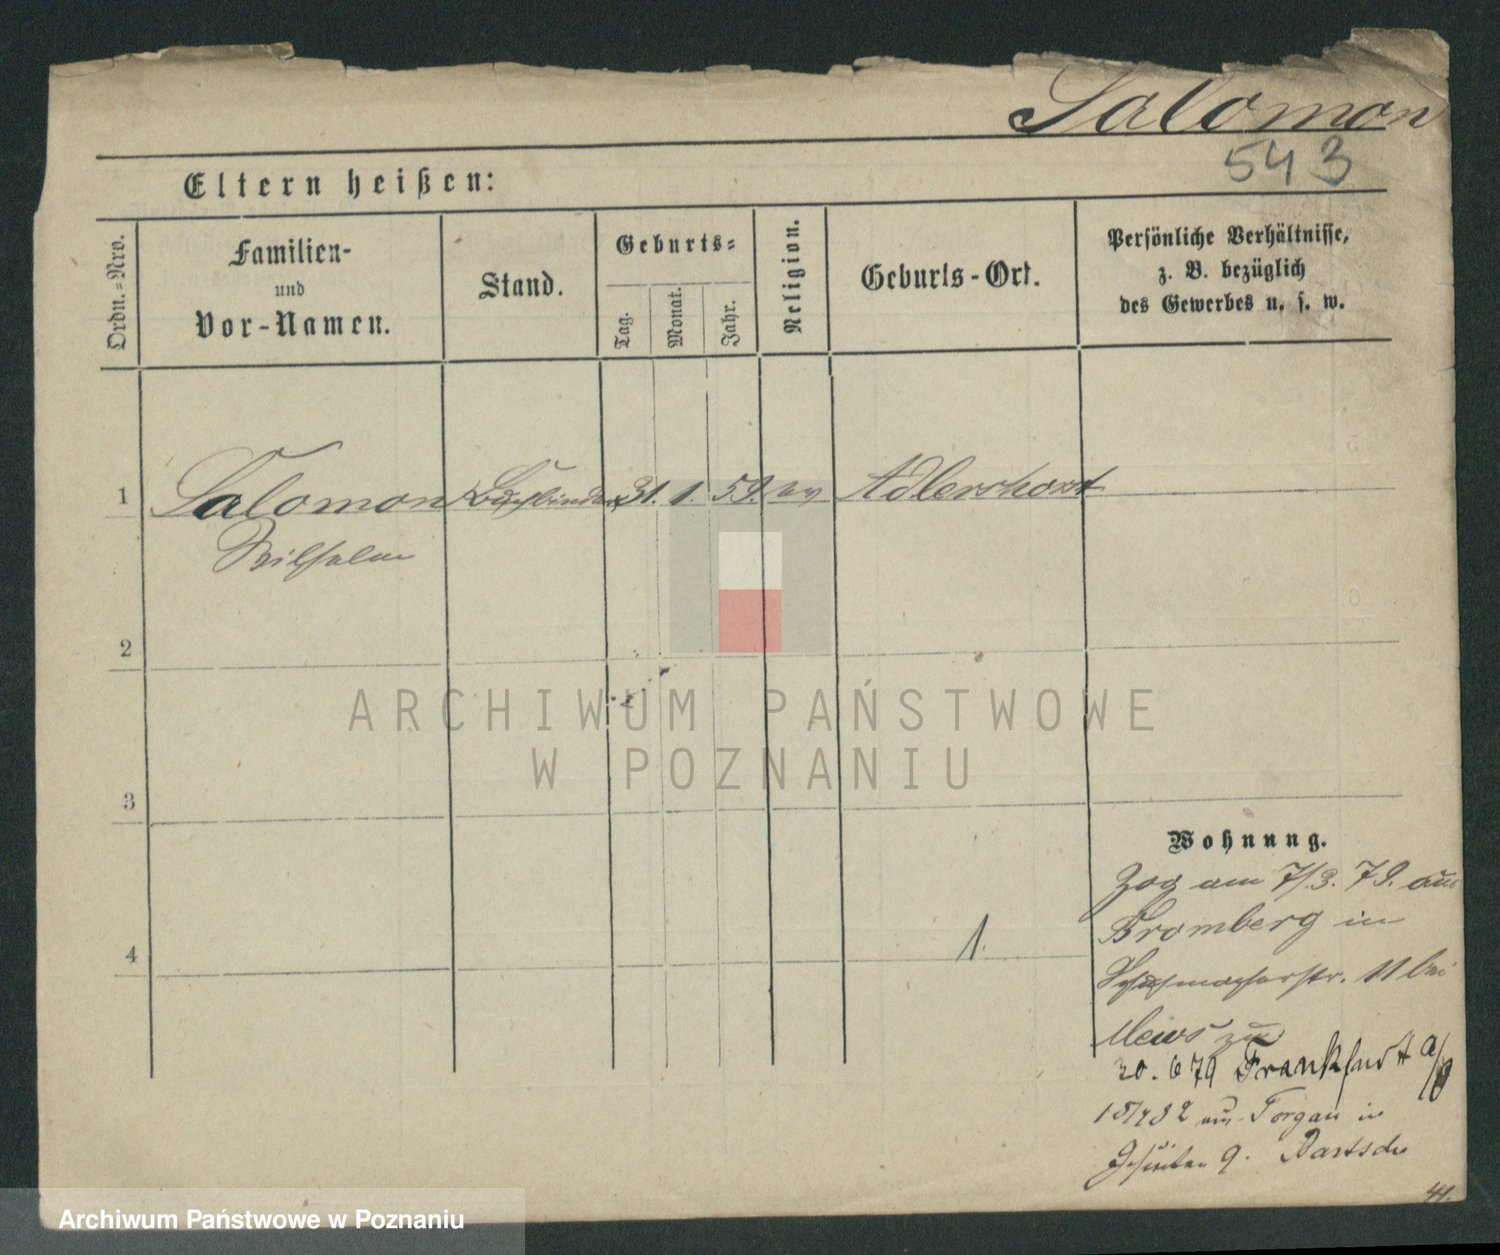 Salomon
543
Eltern heißen:
Ordn.-Nro.
Familien-
und
Vor-Namen.
Stand.
Geburts-
Tag.
Monat.
Jahr.
Religion.
Geburts-Ort.
Persönliche Verhältnisse,
z. B. bezüglich
des Gewerbes u. s. w.
1 Salomon Buchbinder 31. 1. 59. ev Adlershorst
Wilhelm
2
ARCHIWUM PAŃSTWOWE
W POZNANIU
3
Wohnung.
Zog am 7/3. 79. aus
Bromberg in
4
1.
Schuhmacherstr. 11 bei
Mews
30. 6 79 Frankfurt a/O
15/4 82 aus Torgau in
Jesuiten 9.
41.
Archiwum Państwowe w Poznaniu